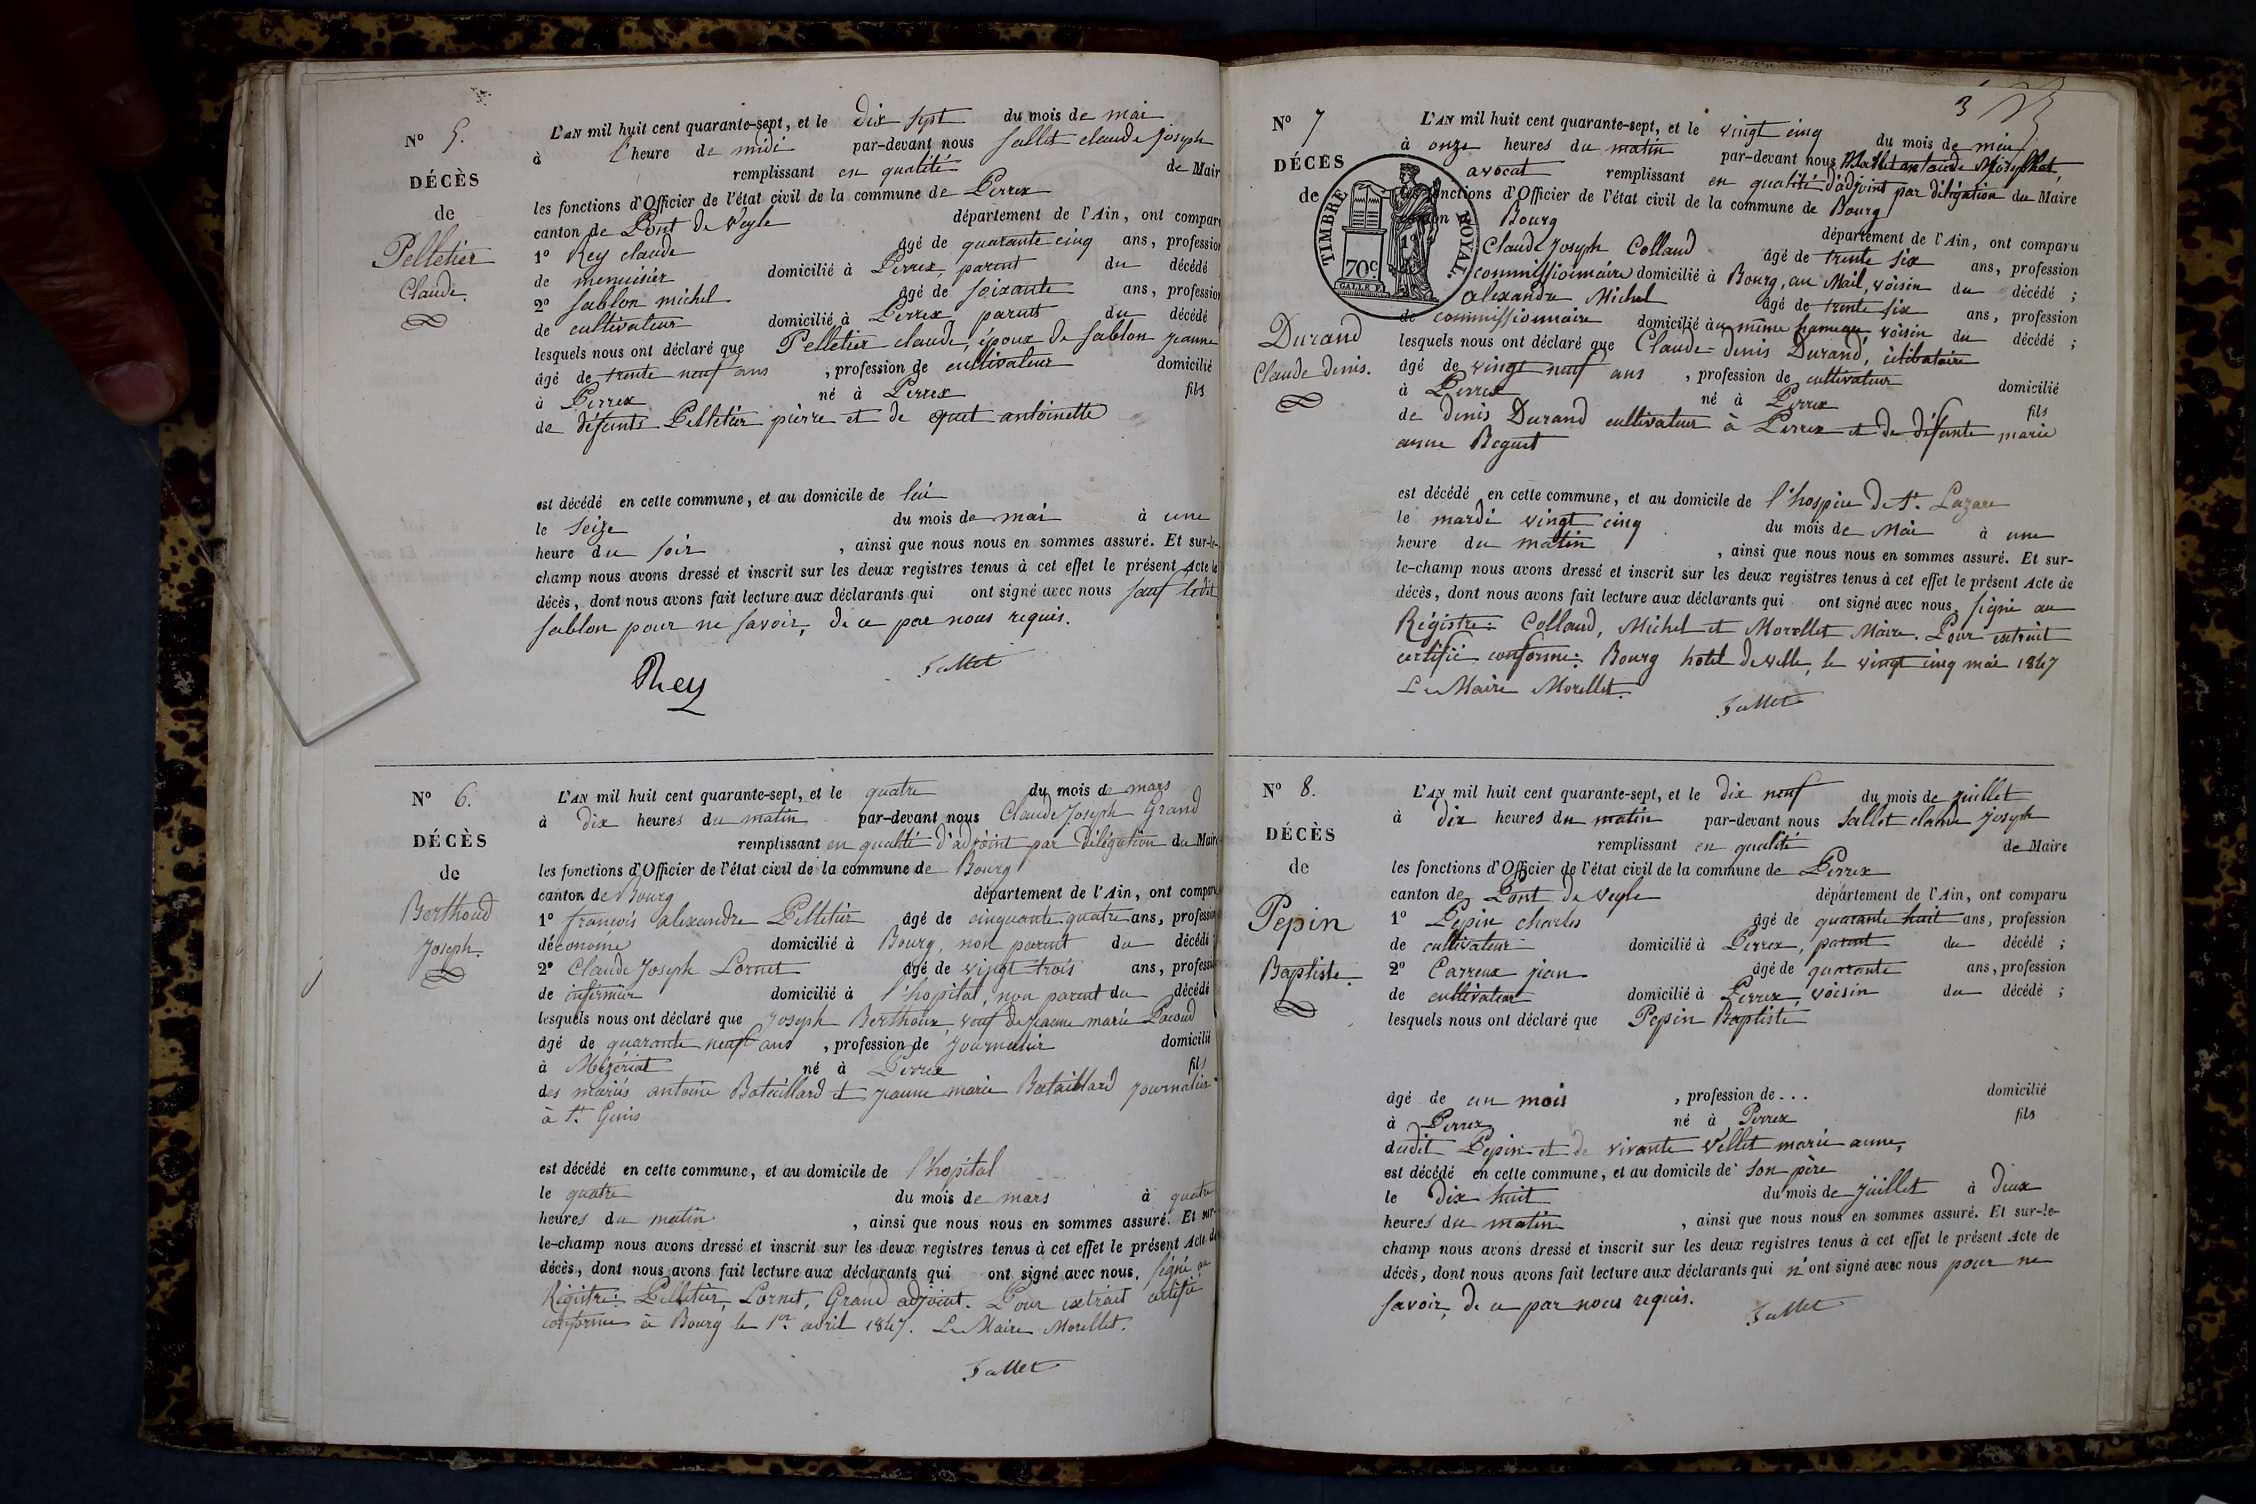 N° 5.
DÉCÈS
de
Pelletier
Claude.
L'AN mil huit cent quarante-sept, et le dix sept du mois de mai
à l'heure de midi par-devant nous Sallet claude Joseph
remplissant en qualité de Mair
les fonctions d'Officier de l'état civil de la commune de Perrex
canton de Pont de Veyle département de l'Ain, ont compar
1° Rey claude âgé de quarante cinq ans, profession
de menuisier domicilié à Perrex, parent du décédé
2° Sablon michel âgé de soixante ans, profession
de cultivateur domicilié à Perrex parent du décédé
lesquels nous ont déclaré que Pelletier claude, époux de Sablon jeanne
âgé de trente neuf ans, profession de cultivateur domicilié
à Perrex né à Perrex fils
de défunts Pelletier pierre et de antoinette
est décédé en cette commune, et au domicile de lui
le seize du mois de mai à une
heure du soir, ainsi que nous nous en sommes assuré. Et sur-le-
champ nous avons dressé et inscrit sur les deux registres tenus à cet effet le présent Acte de
décès, dont nous avons fait lecture aux déclarants qui ont signé avec nous sauf ledit
Sablon pour ne savoir, de ce par nous requis.
Rey Sallet
N° 6.
DÉCÈS
de
Berthoud
Joseph.
L'AN mil huit cent quarante-sept, et le quatre du mois de mars
à dix heures du matin par-devant nous Claude Joseph Grand
remplissant en qualité d'adjoint par délégation du Maire
les fonctions d'Officier de l'état civil de la commune de Bourg
canton de Bourg département de l'Ain, ont comparu
1° françois alexandre Pelletier âgé de cinquante quatre ans, profession
d'économe domicilié à Bourg, non parent du décédé;
2° Claude Joseph Lornet âgé de vingt trois ans, profession
de infirmier domicilié à l'hopital, non parent du décédé
lesquels nous ont déclaré que Joseph Berthoux, veuf de jeanne marie Pacoud
âgé de quarante neuf ans, profession de journalier domicilié
à Mézériat né à Perrex fils
des mariés antoine Bataillard et jeanne marie Bataillard journalier
à St. Genis
est décédé en cette commune, et au domicile de l'hopital
le quatre du mois de mars à quatre
heures du matin, ainsi que nous nous en sommes assuré. Et sur-
le-champ nous avons dressé et inscrit sur les deux registres tenus à cet effet le présent Acte de
décès, dont nous avons fait lecture aux déclarants qui ont signé avec nous, signé au
Régistre: Pelletier, Lornet, Grand adjoint. Pour extrait certifié
conforme à Bourg le 1er avril 1847. Le Maire Morellet.
Sallet
3
N° 7
DÉCÈS
de
Durand
Claude denis.
TIMBRE ROYAL.
70c
L'AN mil huit cent quarante-sept, et le vingt cinq du mois de mai
à onze heures du matin par-devant nous
avocat remplissant en qualité d'adjoint par délégation du Maire
fonctions d'Officier de l'état civil de la commune de Bourg
Bourg département de l'Ain, ont comparu
Claude Joseph Colland âgé de trente six ans, profession
commissionnaire domicilié à Bourg, au Mail, voisin du décédé;
alexandre Michel âgé de trente six ans, profession
de commissionnaire domicilié au même hameau, voisin du décédé;
lesquels nous ont déclaré que Claude-denis Durand, célibataire
âgé de vingt neuf ans, profession de cultivateur domicilié
à Perrex né à Perrex fils
de denis Durand cultivateur à Perrex et de défunte marie
anne Béguet
est décédé en cette commune, et au domicile de l'hospice de St. Lazare
le mardi vingt cinq du mois de Mai à une
heure du matin, ainsi que nous nous en sommes assuré. Et sur-
le-champ nous avons dressé et inscrit sur les deux registres tenus à cet effet le présent Acte de
décès, dont nous avons fait lecture aux déclarants qui ont signé avec nous, signé au
Régistre: Colland, Michel et Morellet Maire. Pour extrait
certifié conforme: Bourg hotel de ville, le vingt cinq mai 1847
Le Maire Morellet.
Sallet
N° 8.
DÉCÈS
de
Pepin
Baptiste.
L'AN mil huit cent quarante-sept, et le dix neuf du mois de juillet
à dix heures du matin par-devant nous Sallet claude Joseph
remplissant en qualité de Maire
les fonctions d'Officier de l'état civil de la commune de Perrex
canton de Pont de Veyle département de l'Ain, ont comparu
1° Pepin charles âgé de quarante huit ans, profession
de cultivateur domicilié à Perrex, parent du décédé;
2° Carreux jean âgé de quarante ans, profession
de cultivateur domicilié à Perrex, voisin du décédé;
lesquels nous ont déclaré que Pepin Baptiste
âgé de un mois, profession de... domicilié
à Perrex né à Perrex fils
dudit Pepin et de vivante Vellet marie anne,
est décédé en cette commune, et au domicile de son père
le dix huit du mois de juillet à deux
heures du matin, ainsi que nous nous en sommes assuré. Et sur-le-
champ nous avons dressé et inscrit sur les deux registres tenus à cet effet le présent Acte de
décès, dont nous avons fait lecture aux déclarants qui n'ont signé avec nous pour ne
savoir, de ce par nous requis.
Sallet